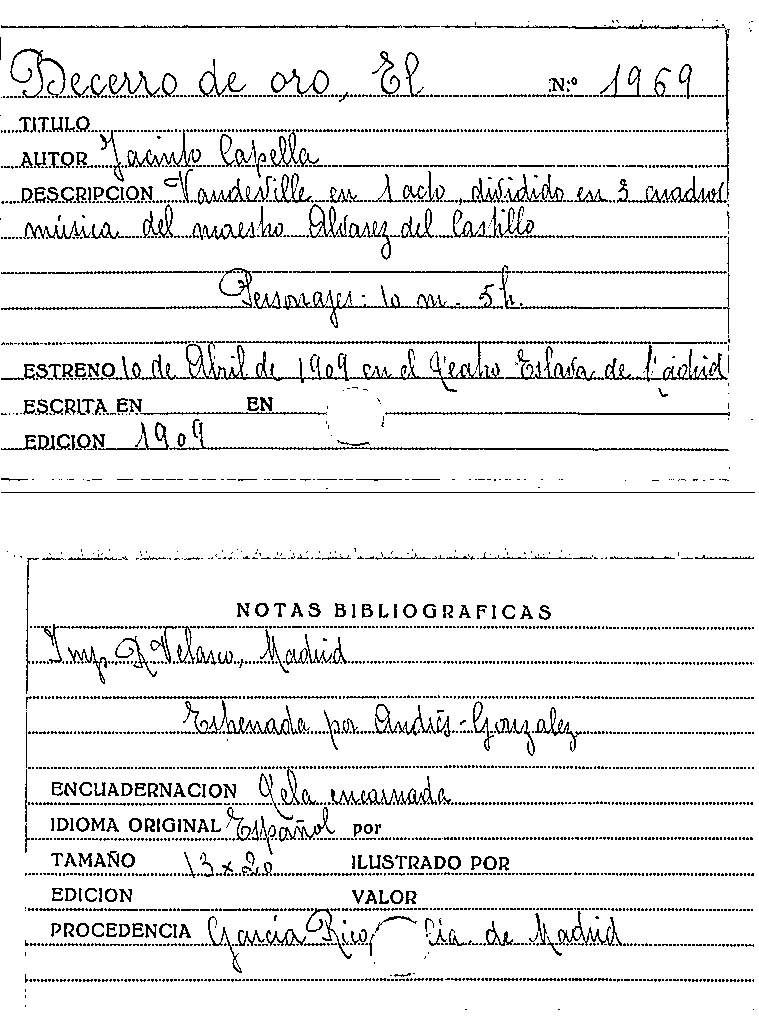 Becerro de oro, El N.º 1969
TITULO
AUTOR Jacinto Capella
DESCRIPCION Vaudeville en 1 acto, dividido en 3 cuadros
música del maestro Alvarez del Castillo
Personajes: 10 m. 5 h.
ESTRENO 10 de Abril de 1909 en el Teatro Eslava de Madrid
ESCRITA EN EN
EDICION 1909
NOTAS BIBLIOGRAFICAS
Imp. R. Velasco, Madrid
Estrenada por Andrés-Gonzalez
ENCUADERNACION Tela encarnada
IDIOMA ORIGINAL Español por
TAMAÑO 13 x 20 ILUSTRADO POR
EDICION VALOR
PROCEDENCIA García Rico, Cía. de Madrid